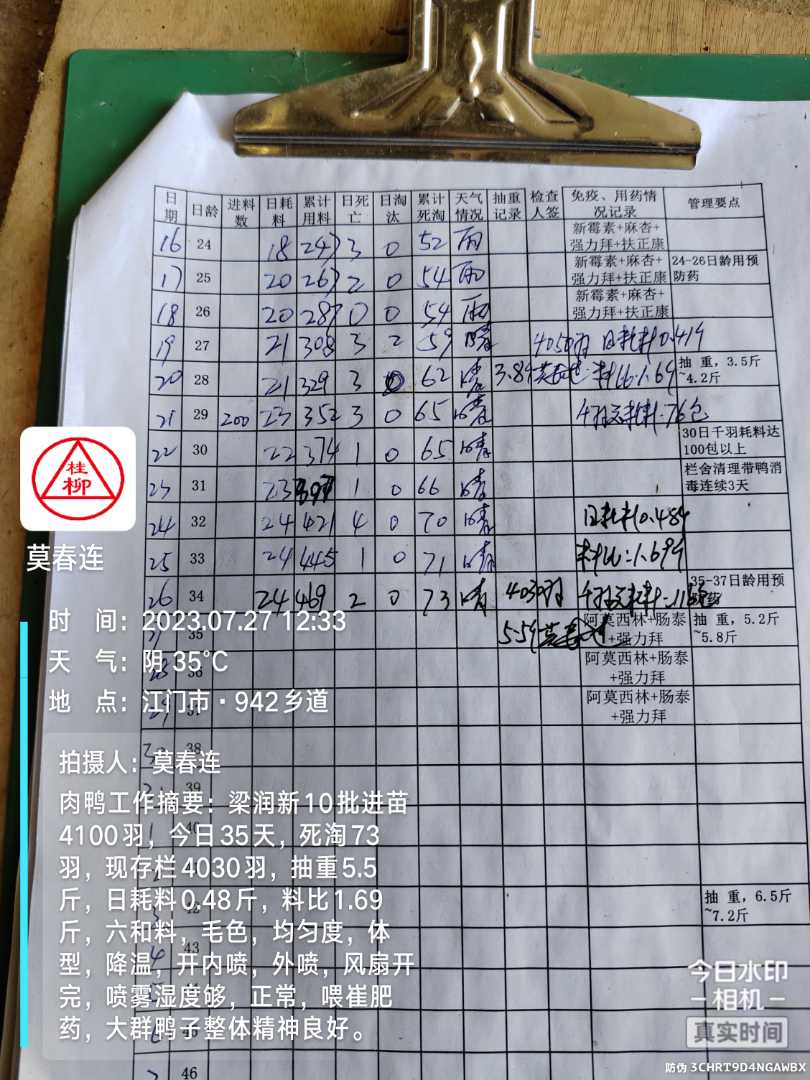 日期 日龄 进料数 日耗料 累计用料 日死亡 日淘汰 累计死淘 天气情况 抽重记录 检查人签 免疫、用药情况记录 管理要点
16 24 18 247 3 0 52 雨 新霉素+麻杏+
强力拜+扶正康
17 25 20 267 2 0 54 雨 新霉素+麻杏+
强力拜+扶正康 24-26日龄用预
防药
18 26 20 287 0 0 54 雨 新霉素+麻杏+
强力拜+扶正康
19 27 21 308 3 2 59 晴 4050羽 日耗料0.419
20 28 21 329 3 0 62 晴 3.89 料比:1.69 抽重,3.5斤
~4.2斤
21 29 200 23 352 3 0 65 晴 76包
22 30 22 374 1 0 65 晴 30日千羽耗料达
100包以上
23 31 23 397 1 0 66 晴 栏舍清理带鸭消
毒连续3天
24 32 24 421 4 0 70 晴 日耗料0.489
25 33 24 445 1 0 71 晴 料比:1.699
26 34 24 469 2 0 73 晴 4030羽 35-37日龄用预
35 5.59 阿莫西林+肠泰
+强力拜 抽重,5.2斤
~5.8斤
36 阿莫西林+肠泰
+强力拜
阿莫西林+肠泰
+强力拜
38
39
42 抽重,6.5斤
~7.2斤
43
46
桂
柳
莫春连
时 间:2023.07.27 12:33
天 气:阴 35℃
地 点:江门市·942乡道
拍摄人:莫春连
肉鸭工作摘要:梁润新10批进苗
4100羽,今日35天,死淘73
羽,现存栏4030羽,抽重5.5
斤,日耗料0.48斤,料比1.69
斤,六和料,毛色,均匀度,体
型,降温,开内喷,外喷,风扇开
完,喷雾湿度够,正常,喂崔肥
药,大群鸭子整体精神良好。
今日水印
相机
真实时间
防伪 3CHRT9D4NGAWBX